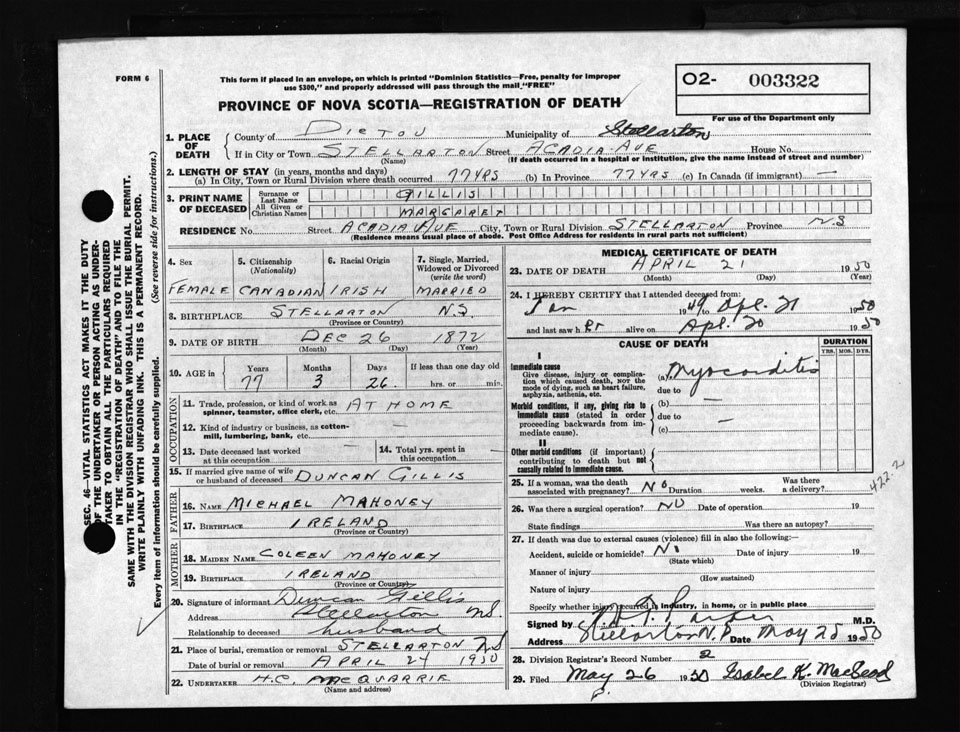 FORM 6
This form if placed in an envelope, on which is printed "Dominion Statistics—Free, penalty for improper
use $300," and properly addressed will pass through the mail "FREE"
PROVINCE OF NOVA SCOTIA—REGISTRATION OF DEATH
O2- 003322
For use of the Department only
SEC. 46—VITAL STATISTICS ACT MAKES IT THE DUTY
OF THE UNDERTAKER OR PERSON ACTING AS UNDER-
TAKER TO OBTAIN ALL THE PARTICULARS REQUIRED
IN THE "REGISTRATION OF DEATH" AND TO FILE THE
SAME WITH THE DIVISION REGISTRAR WHO SHALL ISSUE THE BURIAL PERMIT.
WRITE PLAINLY WITH UNFADING INK. THIS IS A PERMANENT RECORD.
Every item of information should be carefully supplied. (See reverse side for instructions.)
1. PLACE OF DEATH County of PICTOU Municipality of Stellarton
If in City or Town STELLARTON Street ACADIA AVE House No.
(Name) (If death occurred in a hospital or institution, give the name instead of street and number)
2. LENGTH OF STAY (in years, months and days)
(a) In City, Town or Rural Division where death occurred 77 YRS (b) In Province 77 YRS (c) In Canada (if immigrant) —
3. PRINT NAME OF DECEASED Surname or Last Name GILLIS
All Given or Christian Names MARGARET
RESIDENCE No. Street ACADIA AVE City, Town or Rural Division STELLARTON Province N S
(Residence means usual place of abode. Post Office Address for residents in rural parts not sufficient)
4. Sex 5. Citizenship (Nationality) 6. Racial Origin 7. Single, Married, Widowed or Divorced (write the word)
FEMALE CANADIAN IRISH MARRIED
8. BIRTHPLACE STELLARTON N.S.
(Province or Country)
9. DATE OF BIRTH DEC 26 1872
(Month) (Day) (Year)
10. AGE in Years Months Days If less than one day old
77 3 26 hrs. or min.
OCCUPATION
11. Trade, profession, or kind of work as spinner, teamster, office clerk, etc. AT HOME
12. Kind of industry or business, as cotton-mill, lumbering, bank, etc. —
13. Date deceased last worked at this occupation — 14. Total yrs. spent in this occupation —
15. If married give name of wife or husband of deceased DUNCAN GILLIS
FATHER
16. NAME MICHAEL MAHONEY
17. BIRTHPLACE IRELAND
(Province or Country)
MOTHER
18. MAIDEN NAME COLEEN MAHONEY
19. BIRTHPLACE IRELAND
(Province or Country)
20. Signature of informant Duncan Gillis
Address Stellarton N.S.
Relationship to deceased husband
21. Place of burial, cremation or removal STELLARTON N S
Date of burial or removal APRIL 24 1950
22. UNDERTAKER H.C. MACQUARRIE
(Name and address)
MEDICAL CERTIFICATE OF DEATH
23. DATE OF DEATH APRIL 21 1950
(Month) (Day) (Year)
24. I HEREBY CERTIFY that I attended deceased from:
Jan 1949 to Apl. 21 1950
and last saw her alive on Apl. 20 1950
CAUSE OF DEATH DURATION
YRS. MOS. DYS.
I
Immediate cause
Give disease, injury or complication which caused death, nor the mode of dying, such as heart failure, asphyxia, asthenia, etc.
(a) Myocarditis
due to
Morbid conditions, if any, giving rise to immediate cause (stated in order proceeding backwards from immediate cause).
(b) —
due to —
(c)
II
Other morbid conditions (if important) contributing to death but not causally related to immediate cause.
422-2
25. If a woman, was the death associated with pregnancy? No Duration weeks. Was there a delivery?
26. Was there a surgical operation? NO Date of operation 19
State findings Was there an autopsy?
27. If death was due to external causes (violence) fill in also the following:—
Accident, suicide or homicide? Date of injury 19
(State which)
Manner of injury
(How sustained)
Nature of injury
Specify whether injury occurred in industry, in home, or in public place
Signed by M.D.
Address Stellarton N.S. Date May 25 1950
28. Division Registrar's Record Number 2
29. Filed May 26 1950 Isabel K. MacLeod
(Division Registrar)